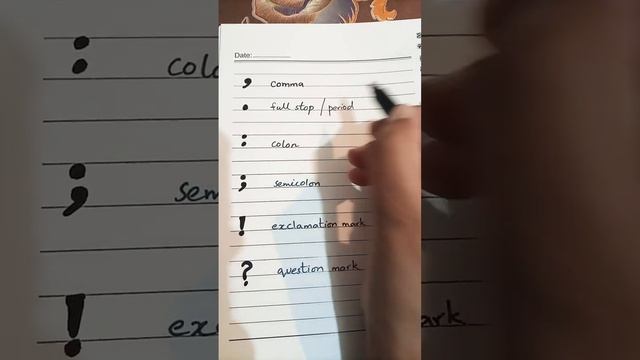 Date:
, comma
. full stop / period
: colon
; semicolon
! exclamation mark
? question mark